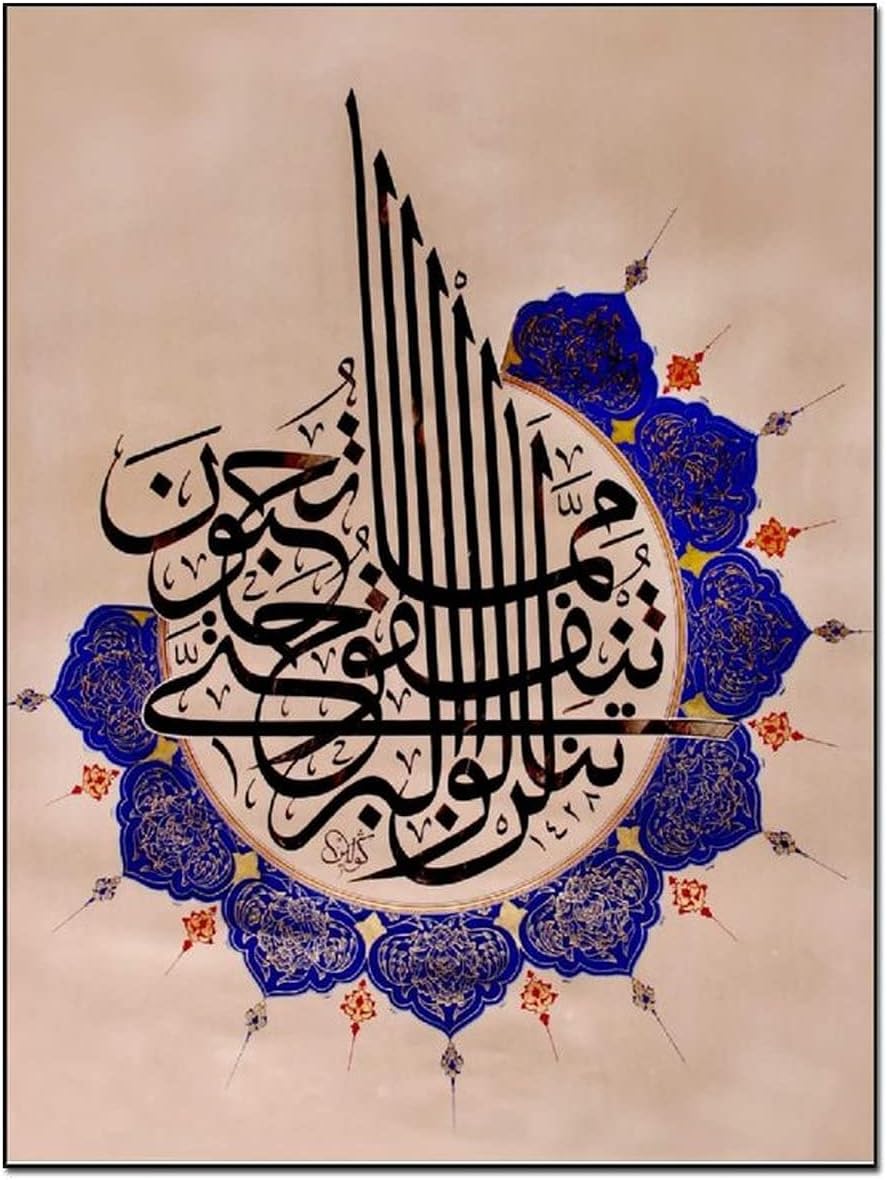 لَنْ تَنَالُوا الْبِرَّ حَتَّى تُنْفِقُوا مِمَّا تُحِبُّونَ
١٤٢٨